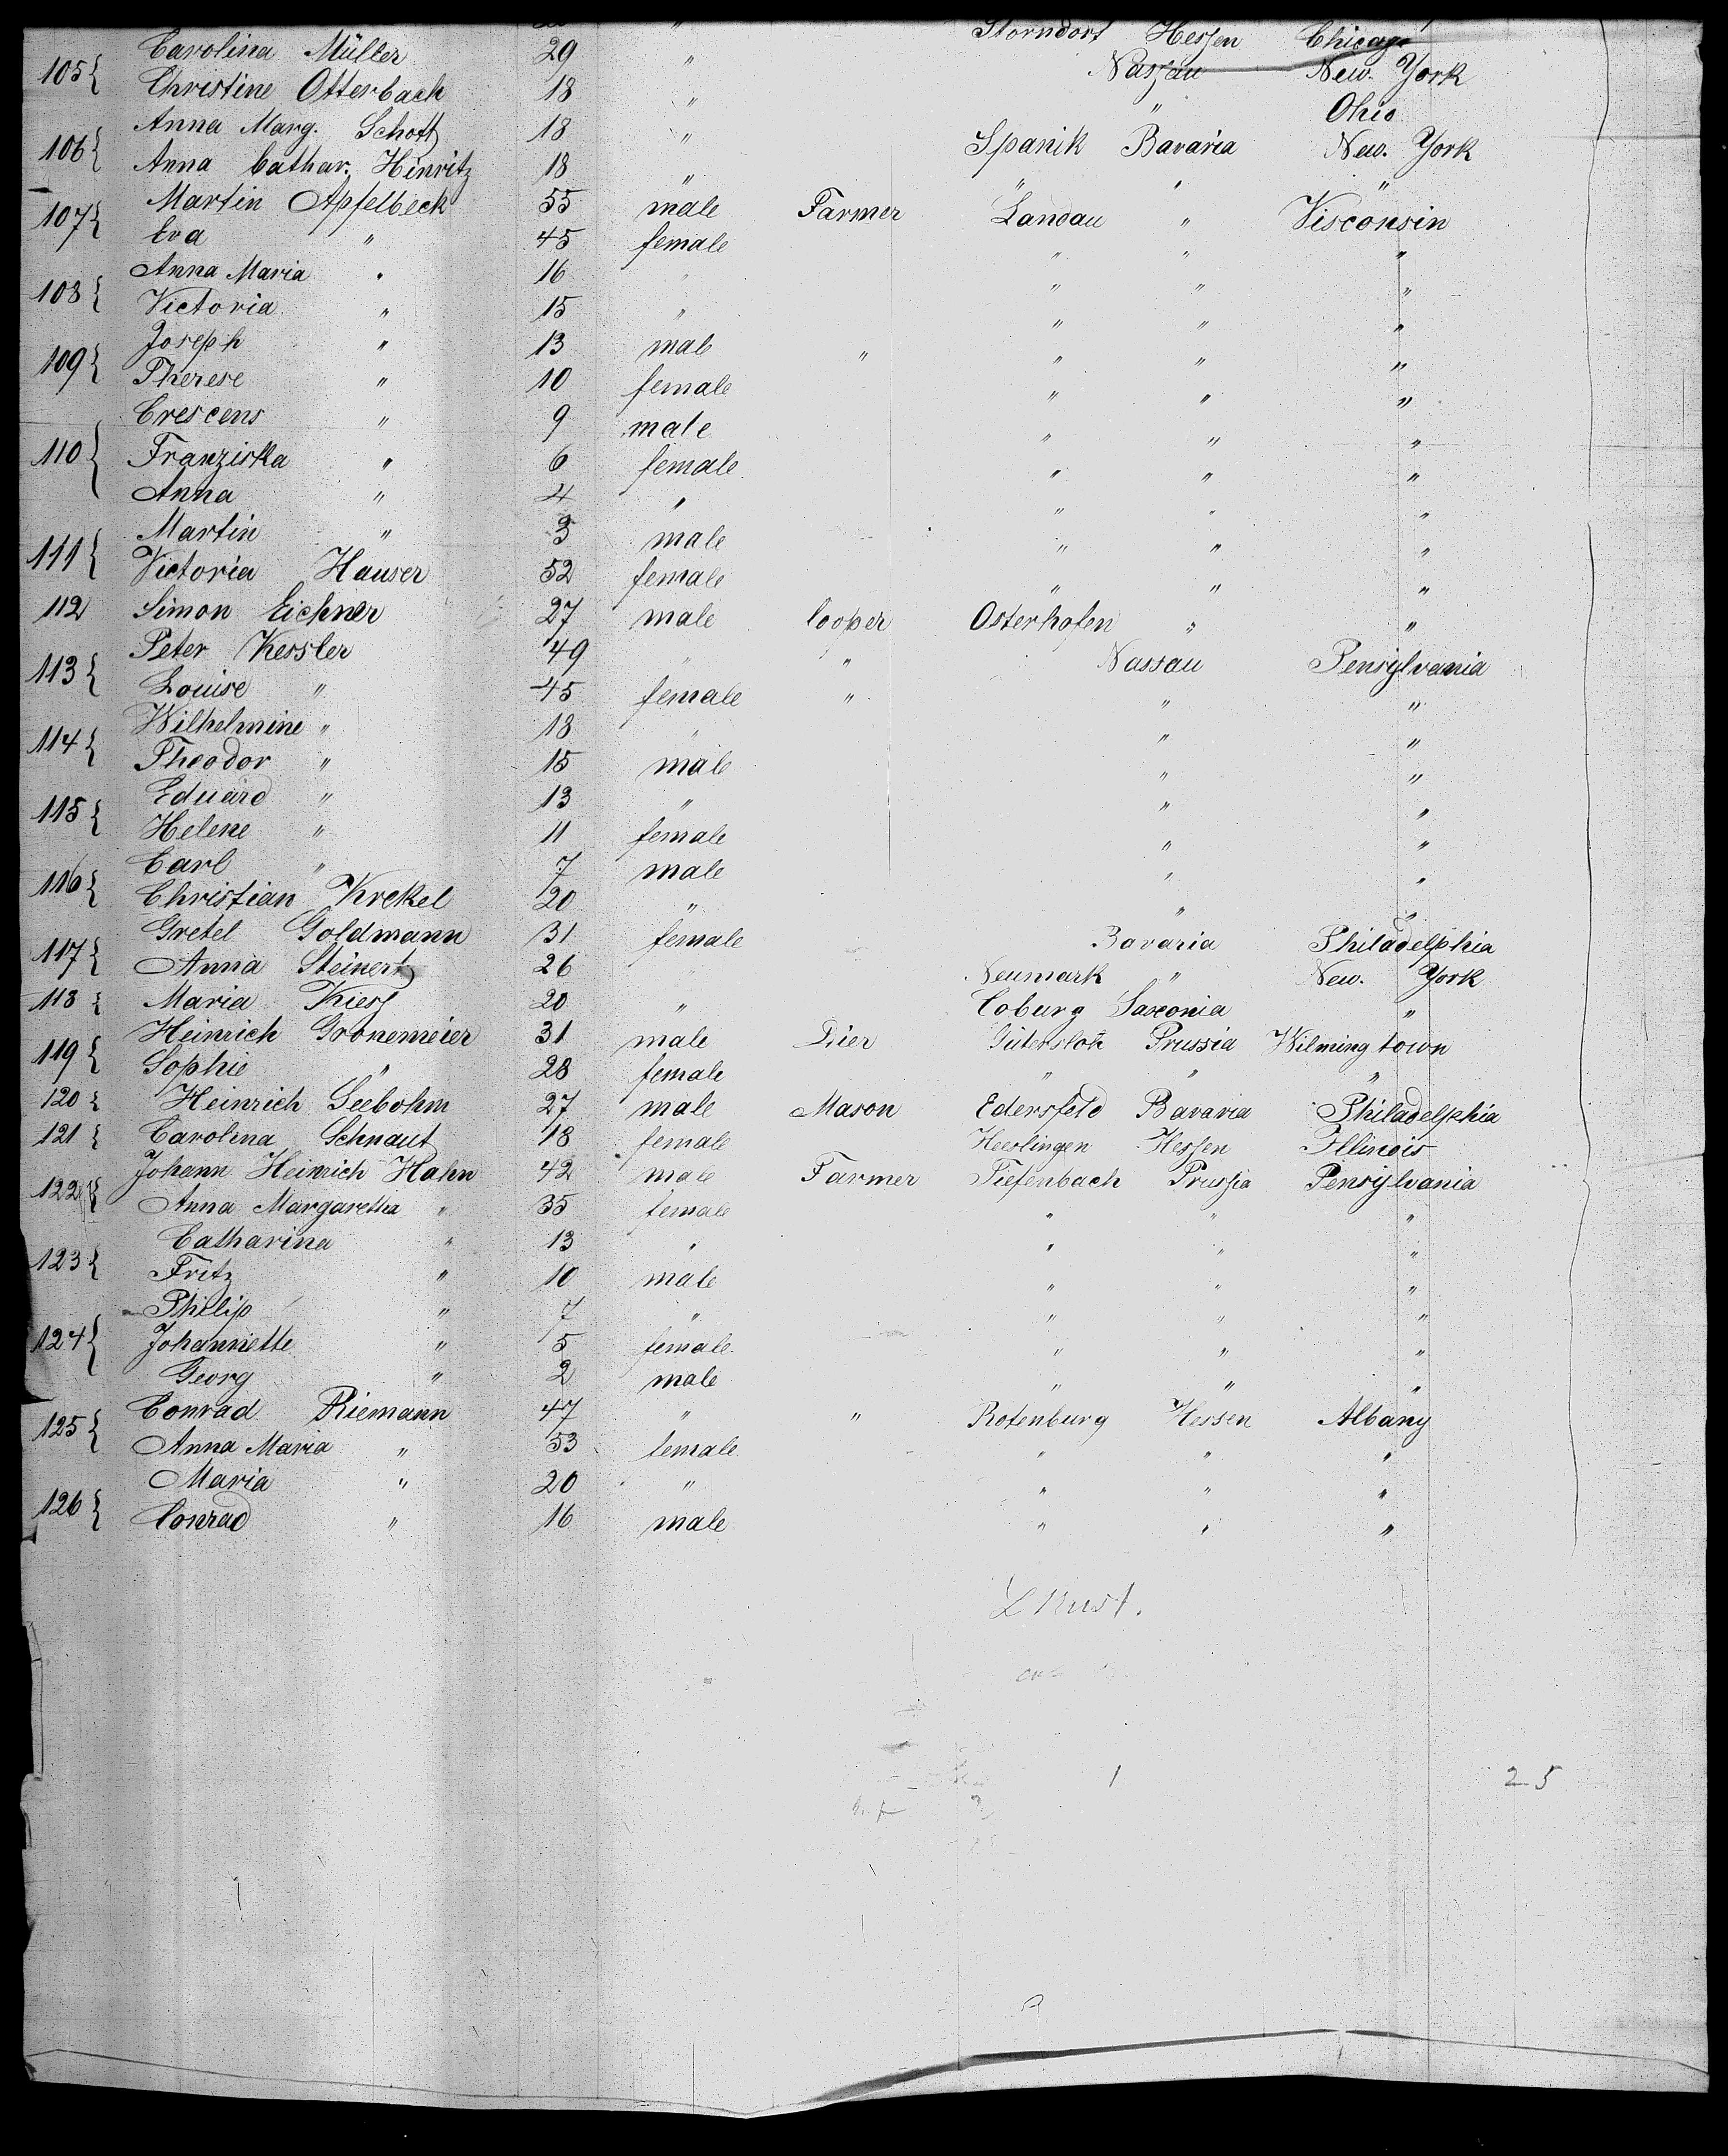 Storndorf Hessen Chicago
105 { Carolina Müller 29 " Nassau New. York
Christine Otterbach 18 " " Ohio
106 { Anna Marg. Schott 18 " Spanik Bavaria New. York
Anna Cathar. Hinritz 18 " " " "
107 { Martin Apfelbeck 55 male Farmer Landau " Visconsin
Eva " 45 female " " "
108 { Anna Maria " 16 " " " "
Victoria " 15 " " " "
109 { Joseph " 13 male " " " "
Therese " 10 female " " "
110 { Crescens " 9 male " " "
Franziska " 6 female " " "
Anna " 4 " " " "
111 { Martin " 3 male " " "
Victoria Hauser 52 female " " "
112 Simon Eichner 27 male Cooper Osterhofen " "
113 { Peter Kessler 49 " " Nassau Pensylvania
Louise " 45 female " " "
114 { Wilhelmine " 18 " " "
Theodor " 15 male " "
115 { Eduard " 13 " " "
Helene " 11 female " "
116 { Carl " 7 male " "
Christian Krekel 20 " " "
117 { Gretel Goldmann 31 female Bavaria Philadelphia
Anna Steinert 26 " Neumark " New. York
118 { Maria Kiess 20 " Coburg Saxonia "
119 { Heinrich Gronemeier 31 male Dier Gütersloh Prussia Wilmingtown
Sophie " 28 female " " "
120 { Heinrich Seebohm 27 male Mason Edersfeld Bavaria Philadelphia
121 { Carolina Schnaut 18 female Heerlingen Hessen Illinois
122 { Johann Heinrich Hahn 42 male Farmer Tiefenbach Prussia Pensylvania
Anna Margaretha " 35 female " " "
123 { Catharina " 13 " " " "
Fritz " 10 male " " "
124 { Philip " 7 " " " "
Johannette " 5 female " " "
Georg " 2 male " " "
125 { Conrad Riemann 47 " " Rotenburg Hessen Albany
Anna Maria " 53 female " " "
126 { Maria " 20 " " " "
Conrad " 16 male " " "
25